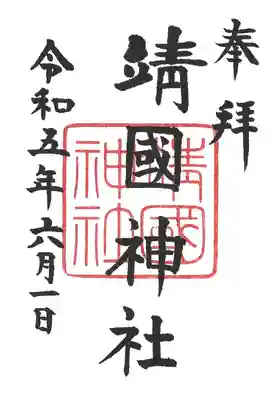 奉拝
靖國神社
令和五年六月一日
靖國神社